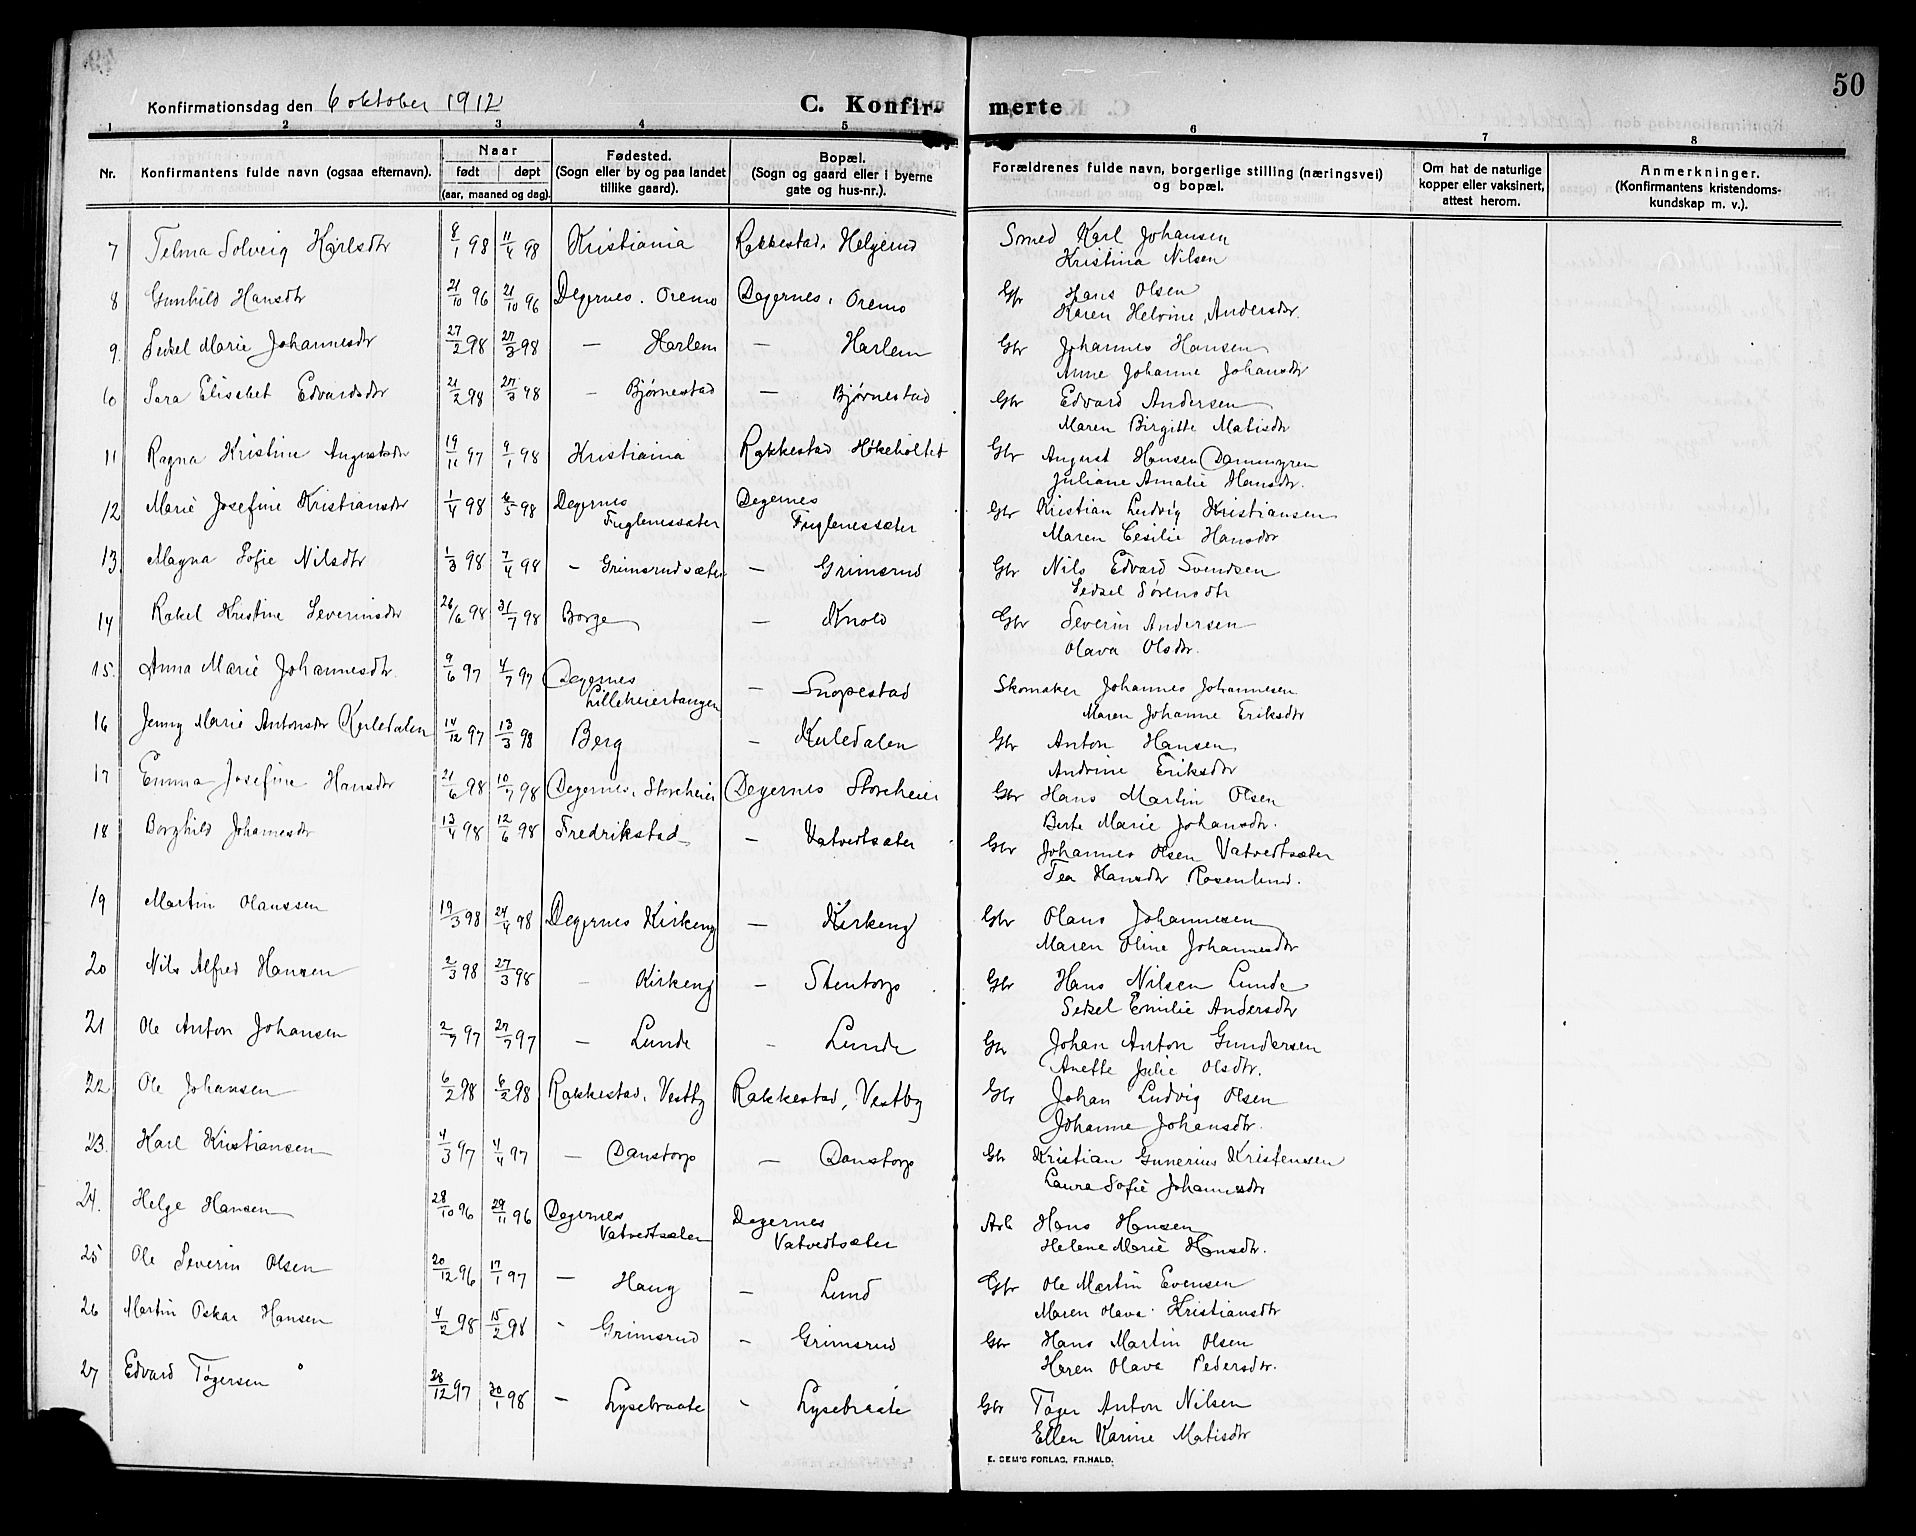 50
Konfirmationsdag den 6 oktober 1912
C. Konfirmerte
1 2 3 4 5 6 7 8
Nr. Konfirmantens fulde navn (ogsaa efternavn). Naar født døpt (aar, maaned og dag). Fødested. (Sogn eller by og paa landet tillike gaard). Bopæl. (Sogn og gaard eller i byerne gate og hus-nr.). Forældrenes fulde navn, borgerlige stilling (næringsvei) og bopæl. Om hat de naturlige kopper eller vaksinert, attest herom. Anmerkninger. (Konfirmantens kristendomskundskap m. v.).
7 Telma Solveig Karlsdtr 8/1 98 11/4 98 Kristiania Rakkestad, Helgerud Smed Karl Johansen
Kristina Nilsen
8 Gunhild Hansdtr 21/10 96 21/10 96 Degernes. Oremo Degernes, Oremo Gbr Hans Olsen
Karen Helvine Andersdtr.
9. Sidsel Marie Johannesdtr 27/2 98 27/3 98 — Harlem — Harlem Gbr Johannes Hansen
Anne Johanne Johansdtr
10 Sara Elisabet Edvardsdtr 21/2 98 27/3 98 — Bjørnestad — Bjørnestad Gbr Edvard Andersen
Maren Birgitte Matisdtr
11 Ragna Kristine Augustsdtr 19/11 97 9/1 98 Kristiania Rakkestad Høkeholtet Gbr August Hansen Dammyren
Juliane Amalie Hansdtr.
12 Marie Josefine Kristiansdtr 1/4 98 6/5 98 Degernes Fuglenessæter Degernes Fuglenessæter Gbr Kristian Ludvig Kristiansen
Maren Cesilie Hansdtr
13. Magna Sofie Nilsdtr 1/3 98 7/4 98 — Grimsrudsæter — Grimsrud Gbr Nils Edvard Svendsen
Sidsel Sørensdtr
14 Rakel Kristine Severinsdtr 26/6 98 31/7 98 Borge — Knold Gbr Severin Andersen
Olava Olsdtr.
15. Anna Marie Johannesdtr. 9/6 97 4/7 97 Degernes Lilleheiertangen — Snopestad Skomaker Johannes Johannesen
Maren Johanne Eriksdtr
16 Jenny Marie Antonsdtr Kerledalen 14/12 97 13/3 98 Berg — Kerledalen Gbr Anton Hansen
Andrine Eriksdtr
17 Emma Josefine Hansdtr 21/6 98 10/7 98 Degernes, Storeheier Degernes Storeheier Gbr Hans Martin Olsen
Berte Marie Johansdtr.
18 Borghild Johannesdtr 13/4 98 12/6 98 Fredrikstad — Vatvedtsæter Gbr Johannes Olsen Vatvedtsæter
Tea Hansdtr Rosenlund.
19 Martin Olanssen 19/3 98 24/4 98 Degernes Kirkeng — Kirkeng Gbr Olans Johannesen
Maren Oline Johannesdtr
20 Nils Alfred Hansen 2/3 98 27/3 98 — Kirkeng — Stentorp Gbr Hans Nilsen Lunde
Sidsel Emilie Andersdtr
21 Ole Anton Johansen 2/7 97 27/7 97 — Lunde — Lunde Gbr Johan Anton Gundersen
Anette Julie Olsdtr.
22 Ole Johansen 6/2 98 6/2 98 Rakkestad, Vestby Rakkestad, Vestby Gbr Johan Ludvig Olsen
Johanne Johansdtr.
23. Karl Kristiansen 4/3 97 4/4 97 — Danstorp — Danstorp Gbr Kristian Gunerius Kristensen
Laura Sofie Johannesdtr
24. Helge Hansen 28/10 96 29/11 96 Degernes Vatvedtsæter Degernes Vatvedtsæter Arb Hans Hansen
Helene Marie Hansdtr.
25 Ole Severin Olsen 20/12 96 17/1 97 — Haug — Lund Gbr Ole Martin Evensen
Maren Olava Kristiansdtr
26 Martin Oskar Hansen 4/2 98 15/2 98 — Grimsrud — Grimsrud Gbr Hans Martin Olsen
Karen Olava Pedersdtr.
27 Edvard Tøgersen 28/12 97 30/1 98 — Lysebraate — Lysebraate Gbr Tøger Anton Nilsen
Ellen Karine Matisdtr
E. SEM'S FORLAG, FR.HALD.